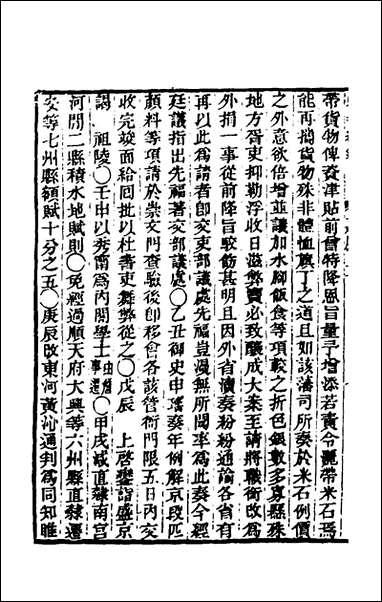 帶貨物俾資津貼前曾特降恩旨量予增添若責令灑帶米石焉
能再搃貨物殊非體恤旗丁之道且如該藩司所奏於米石例價
之外意欲倍增並議加水腳飯食等項較之折色銀數多寡懸殊
地方胥吏抑勒浮收日滋弊竇必致釀成大案至請將職銜改為
外捐一事從前降旨駮飭甚明且因外省瀆奏粉粉通諭各省有
再以此為請者卽交吏部議處先福豈漫無所聞率為此奏令經
廷議指出先福著交部議處〇乙丑御史申瑤奏年例解京段匹
顏料等項請於崇文門查驗後卽移會各該管衙門限五日內交
收完竣面給囘批以杜書吏舞弊從之〇戊辰　上啓鑾詣盛京
謁　祖陵〇壬申以秀甯為內閣學士由詹事遷〇甲戌减直隸南宮
河間二縣積水地賦則〇免經過順天府大興等六州縣直隸遷
安等七州縣額賦十分之五〇庚辰改東河黃沁通判為同知睢